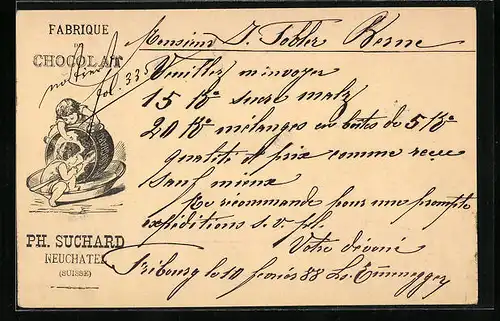 FABRIQUE
CHOCOLAT
noti
fol. 335
PH. SUCHARD
NEUCHATEL
(SUISSE)
Monsieur J. Tobler Berne
Veuillez m'envoyer
15 Ko sucre malz
20 Ko mélanges en boites de 5 Ko
qualité et prix comme recu
sauf mieux
Me recommande pour une prompte
expéditions s. v. pl.
Votre dévoué
Fribourg le 10 février 88